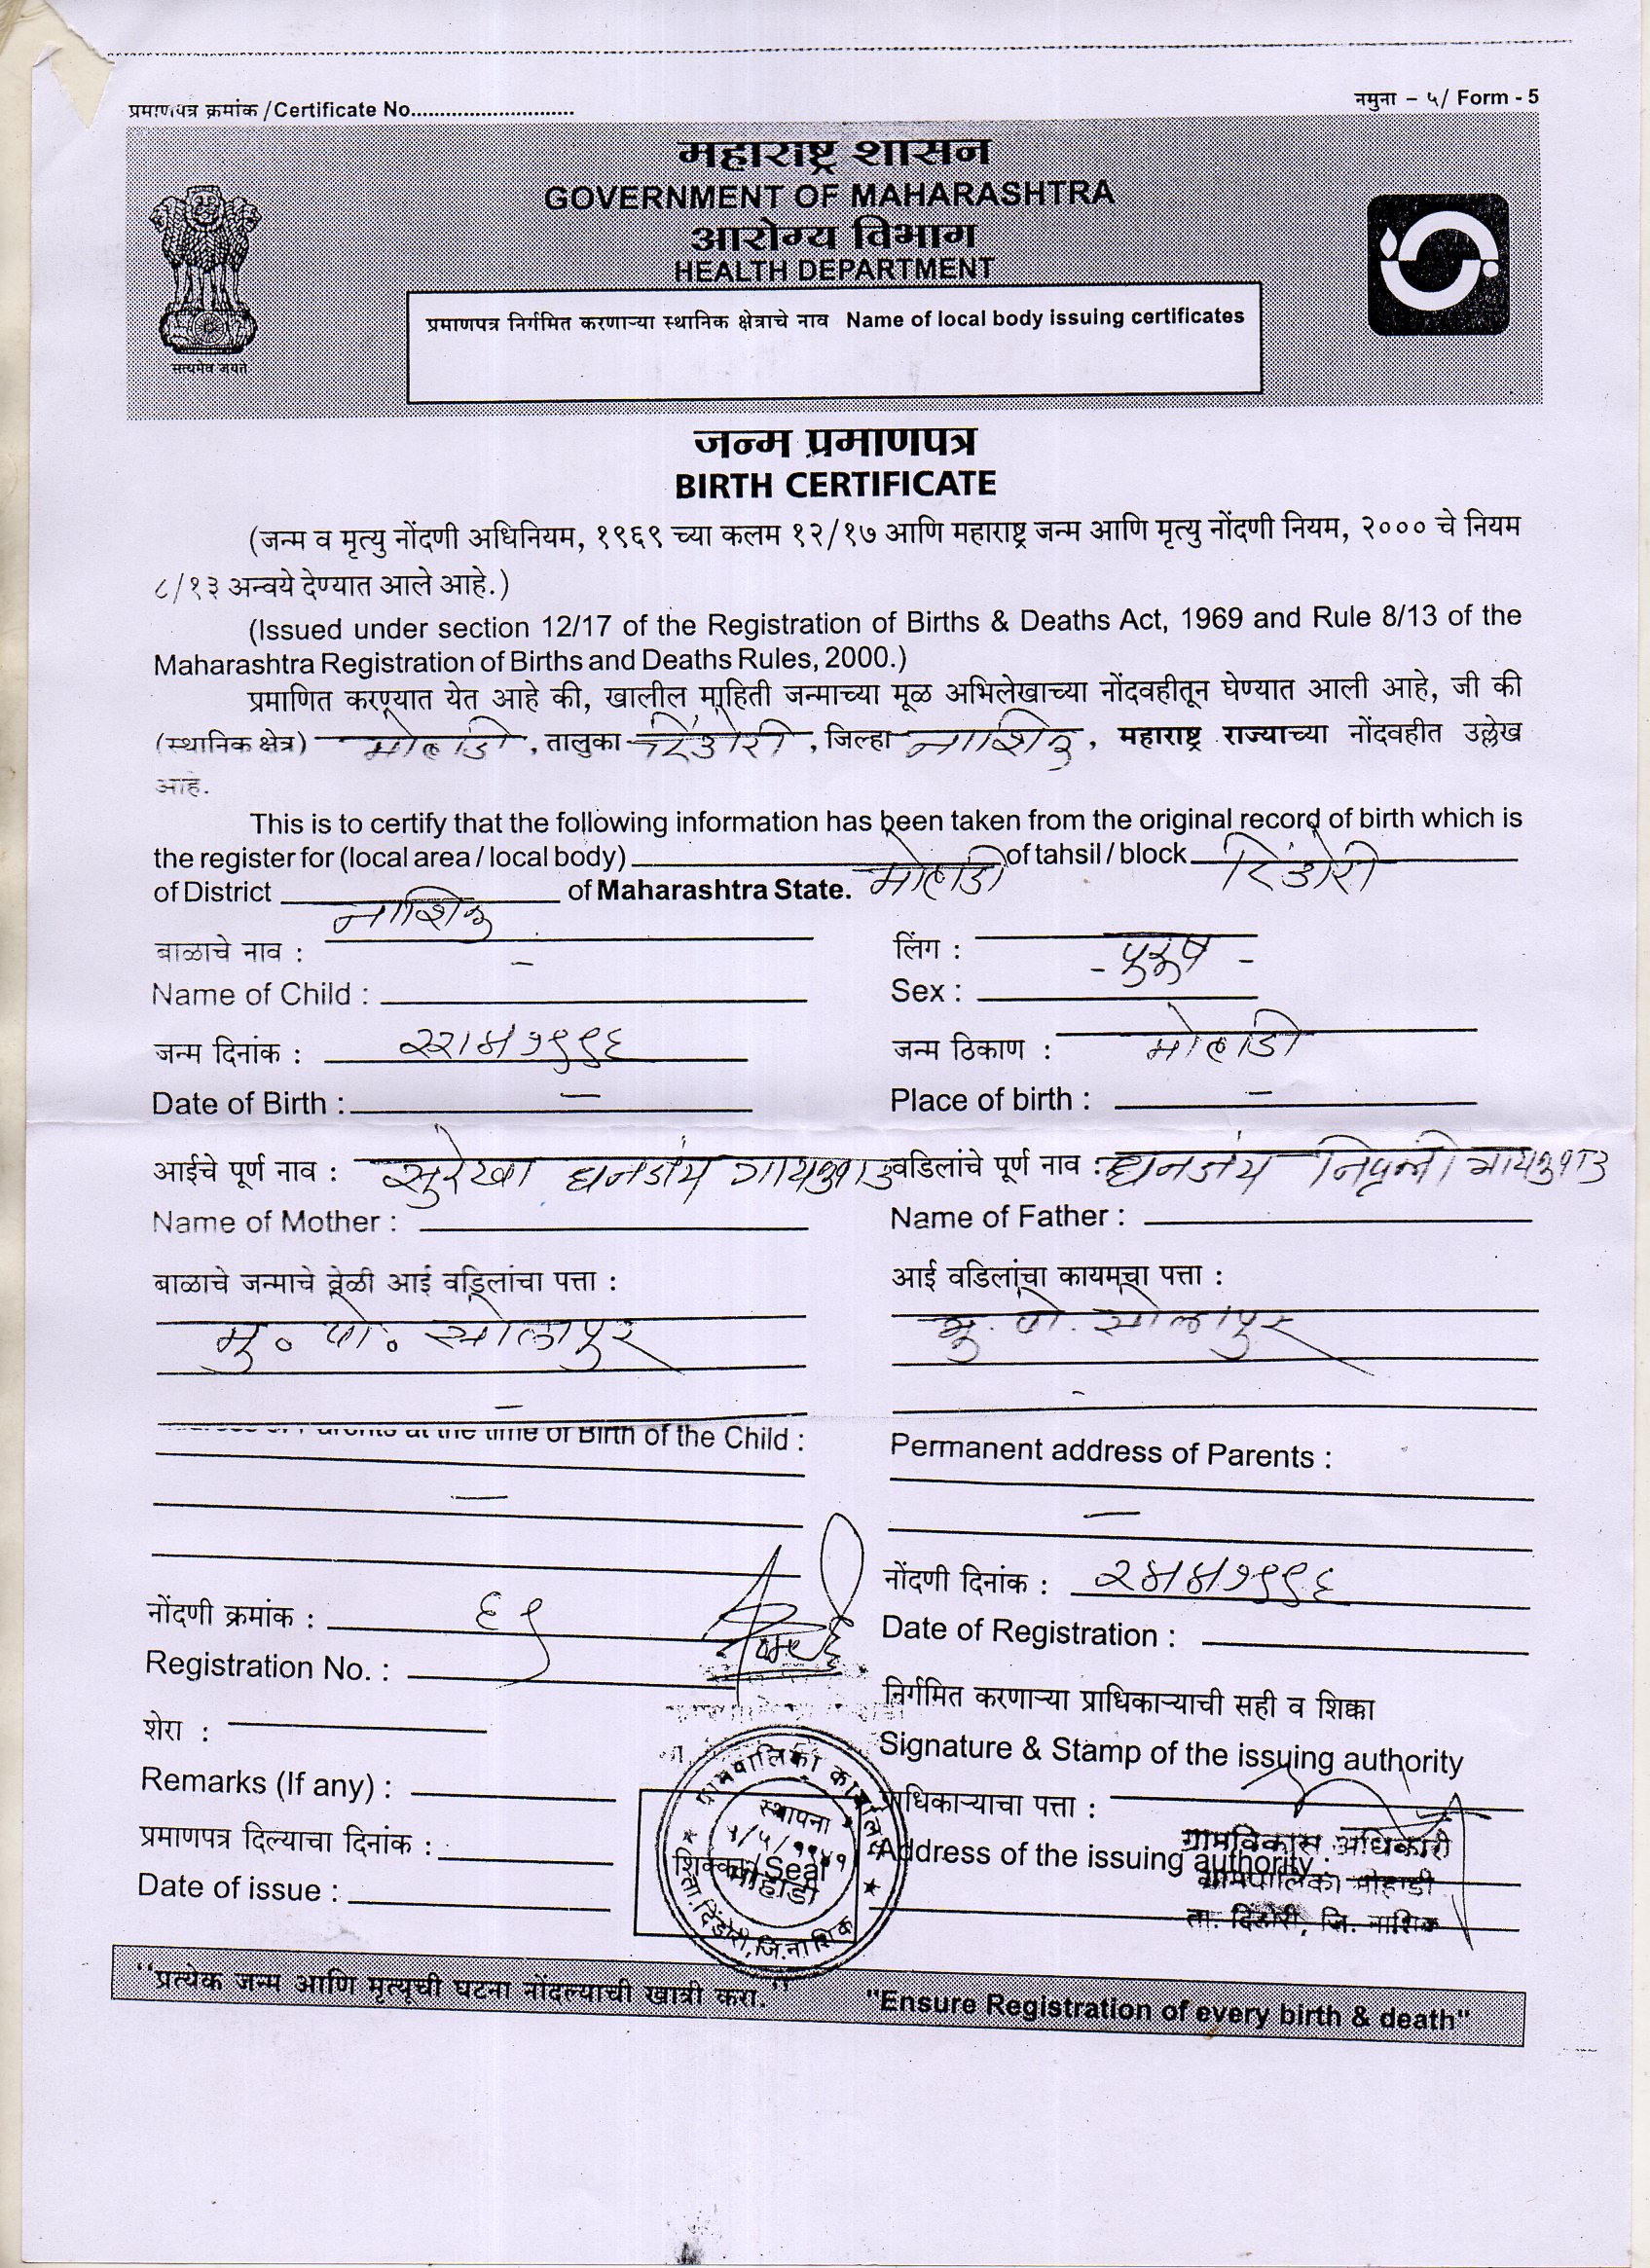 प्रमाणपत्र क्रमांक /Certificate No............................
नमुना – ५/ Form - 5
महाराष्ट्र शासन
GOVERNMENT OF MAHARASHTRA
आरोग्य विभाग
HEALTH DEPARTMENT
सत्यमेव जयते
प्रमाणपत्र निर्गमित करणाऱ्या स्थानिक क्षेत्राचे नाव Name of local body issuing certificates
जन्म प्रमाणपत्र
BIRTH CERTIFICATE
(जन्म व मृत्यु नोंदणी अधिनियम, १९६९ च्या कलम १२/१७ आणि महाराष्ट्र जन्म आणि मृत्यु नोंदणी नियम, २००० चे नियम
८/१३ अन्वये देण्यात आले आहे.)
(Issued under section 12/17 of the Registration of Births & Deaths Act, 1969 and Rule 8/13 of the
Maharashtra Registration of Births and Deaths Rules, 2000.)
प्रमाणित करण्यात येत आहे की, खालील माहिती जन्माच्या मूळ अभिलेखाच्या नोंदवहीतून घेण्यात आली आहे, जी की
(स्थानिक क्षेत्र) मोहाडी , तालुका दिंडोरी , जिल्हा नाशिक , महाराष्ट्र राज्याच्या नोंदवहीत उल्लेख
आहे.
This is to certify that the following information has been taken from the original record of birth which is
the register for (local area / local body) मोहाडी of tahsil / block दिंडोरी
of District नाशिक of Maharashtra State.
बाळाचे नाव : –
लिंग : - पुरुष -
Name of Child :
Sex :
जन्म दिनांक : २२।४।१९९६
जन्म ठिकाण : मोहाडी
Date of Birth : —
Place of birth : –
आईचे पूर्ण नाव : सुरेखा धनंजय गायकवाड
वडिलांचे पूर्ण नाव : धनंजय निवृत्ती गायकवाड
Name of Mother :
Name of Father :
बाळाचे जन्माचे वेळी आई वडिलांचा पत्ता :
आई वडिलांचा कायमचा पत्ता :
मु॰ पो॰ सोलापुर
मु. पो. सोलापुर
Parents at the time of Birth of the Child :
Permanent address of Parents :
नोंदणी दिनांक : २४।४।१९९६
नोंदणी क्रमांक : ६९
Date of Registration :
Registration No. :
निर्गमित करणाऱ्या प्राधिकाऱ्याची सही व शिक्का
शेरा :
Signature & Stamp of the issuing authority
Remarks (If any) :
प्राधिकाऱ्याचा पत्ता :
प्रमाणपत्र दिल्याचा दिनांक :
Address of the issuing authority :
Date of issue :
ग्रामपालिका कार्यालय
स्थापना
शिक्का/Seal
मोहाडी
ता.दिंडोरी,जि.नाशिक
ग्रामविकास अधिकारी
ग्रामपालिका मोहाडी
ता. दिंडोरी, जि. नाशिक
"प्रत्येक जन्म आणि मृत्यूची घटना नोंदल्याची खात्री करा."
"Ensure Registration of every birth & death"